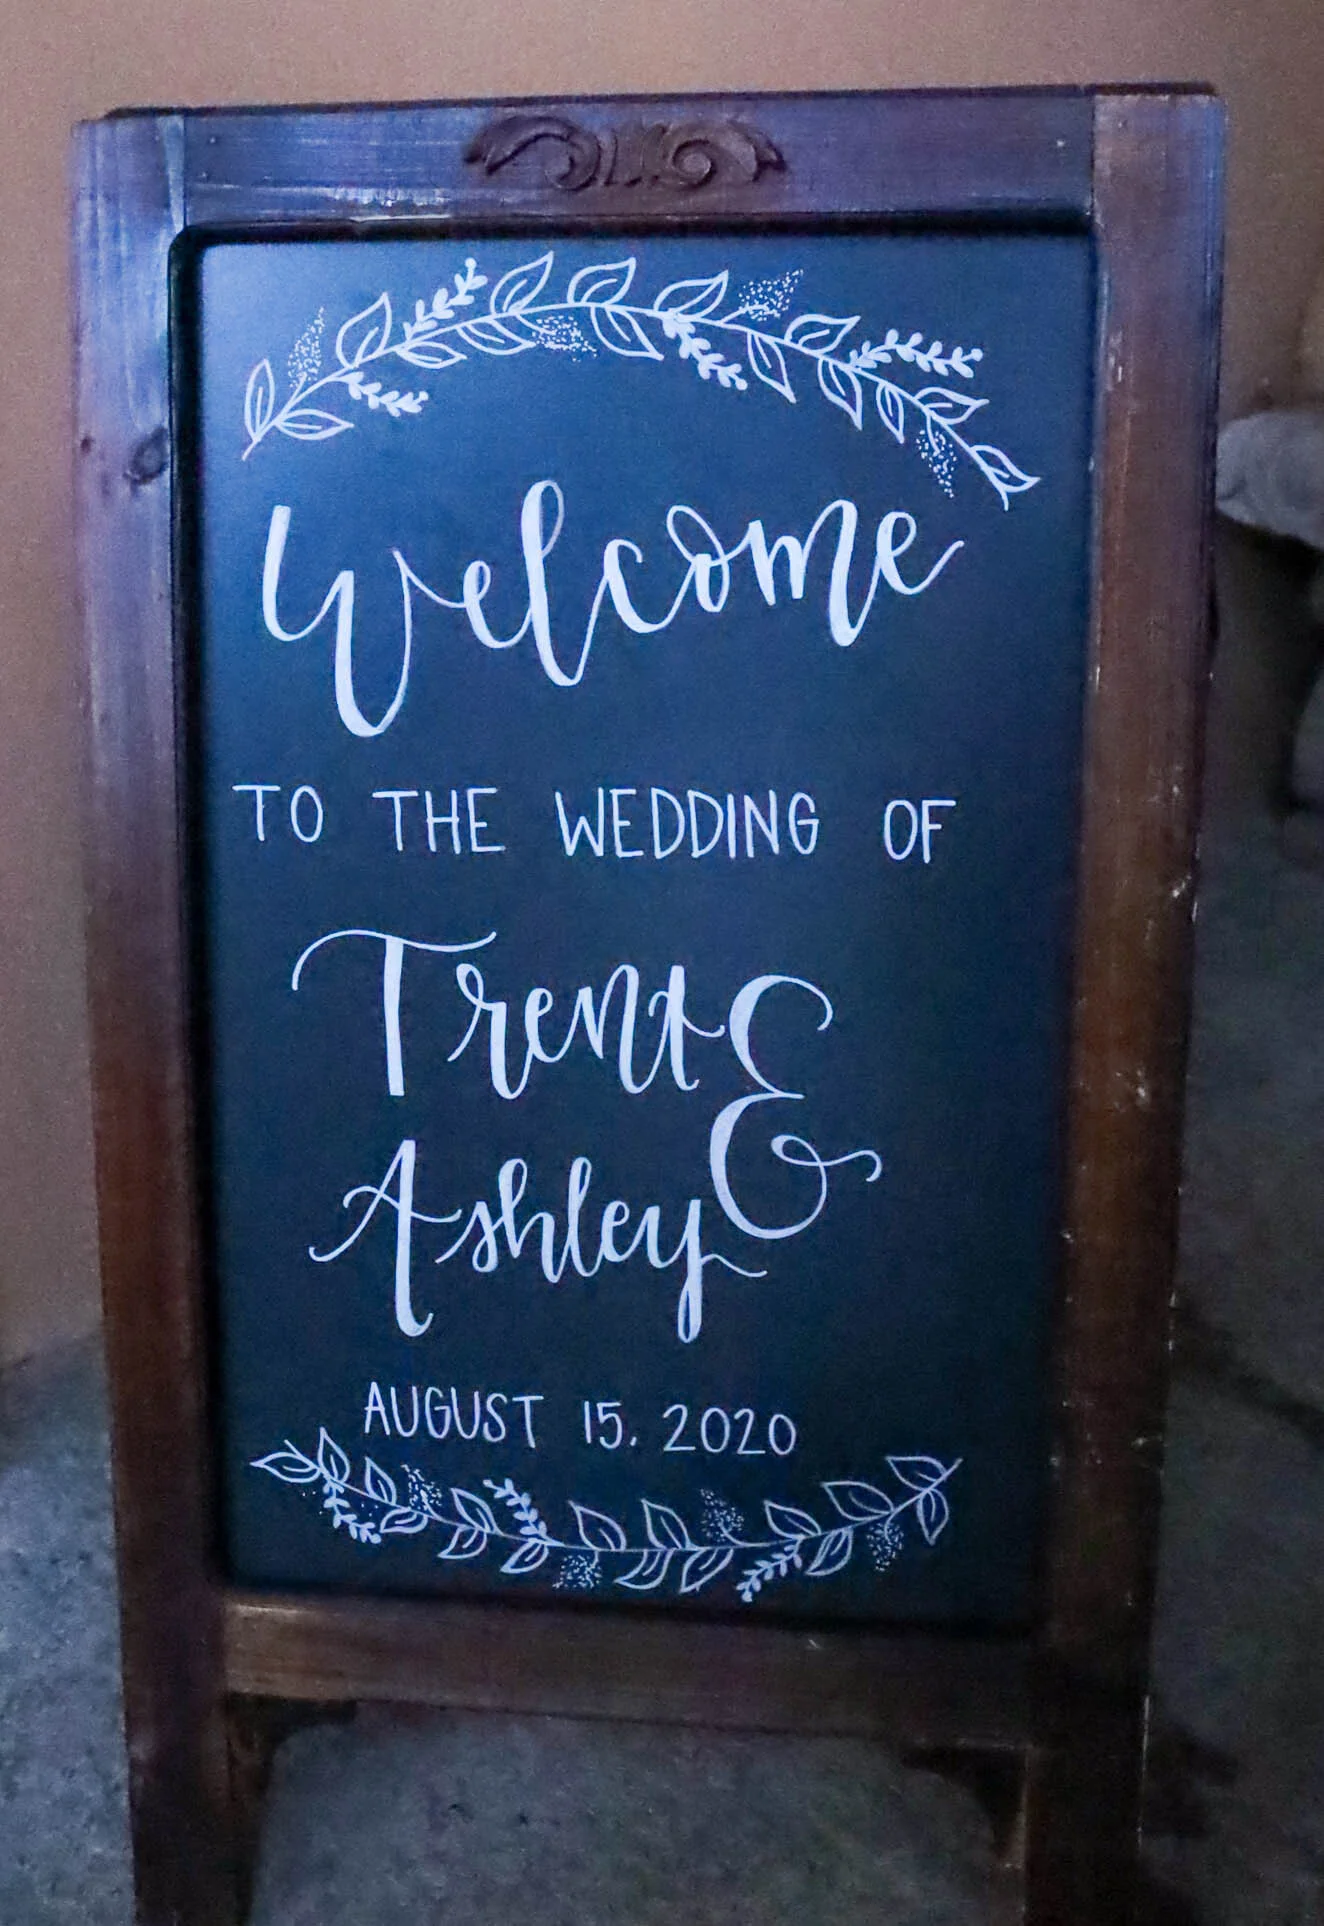 Welcome
TO THE WEDDING OF
Trent &
Ashley
AUGUST 15, 2020